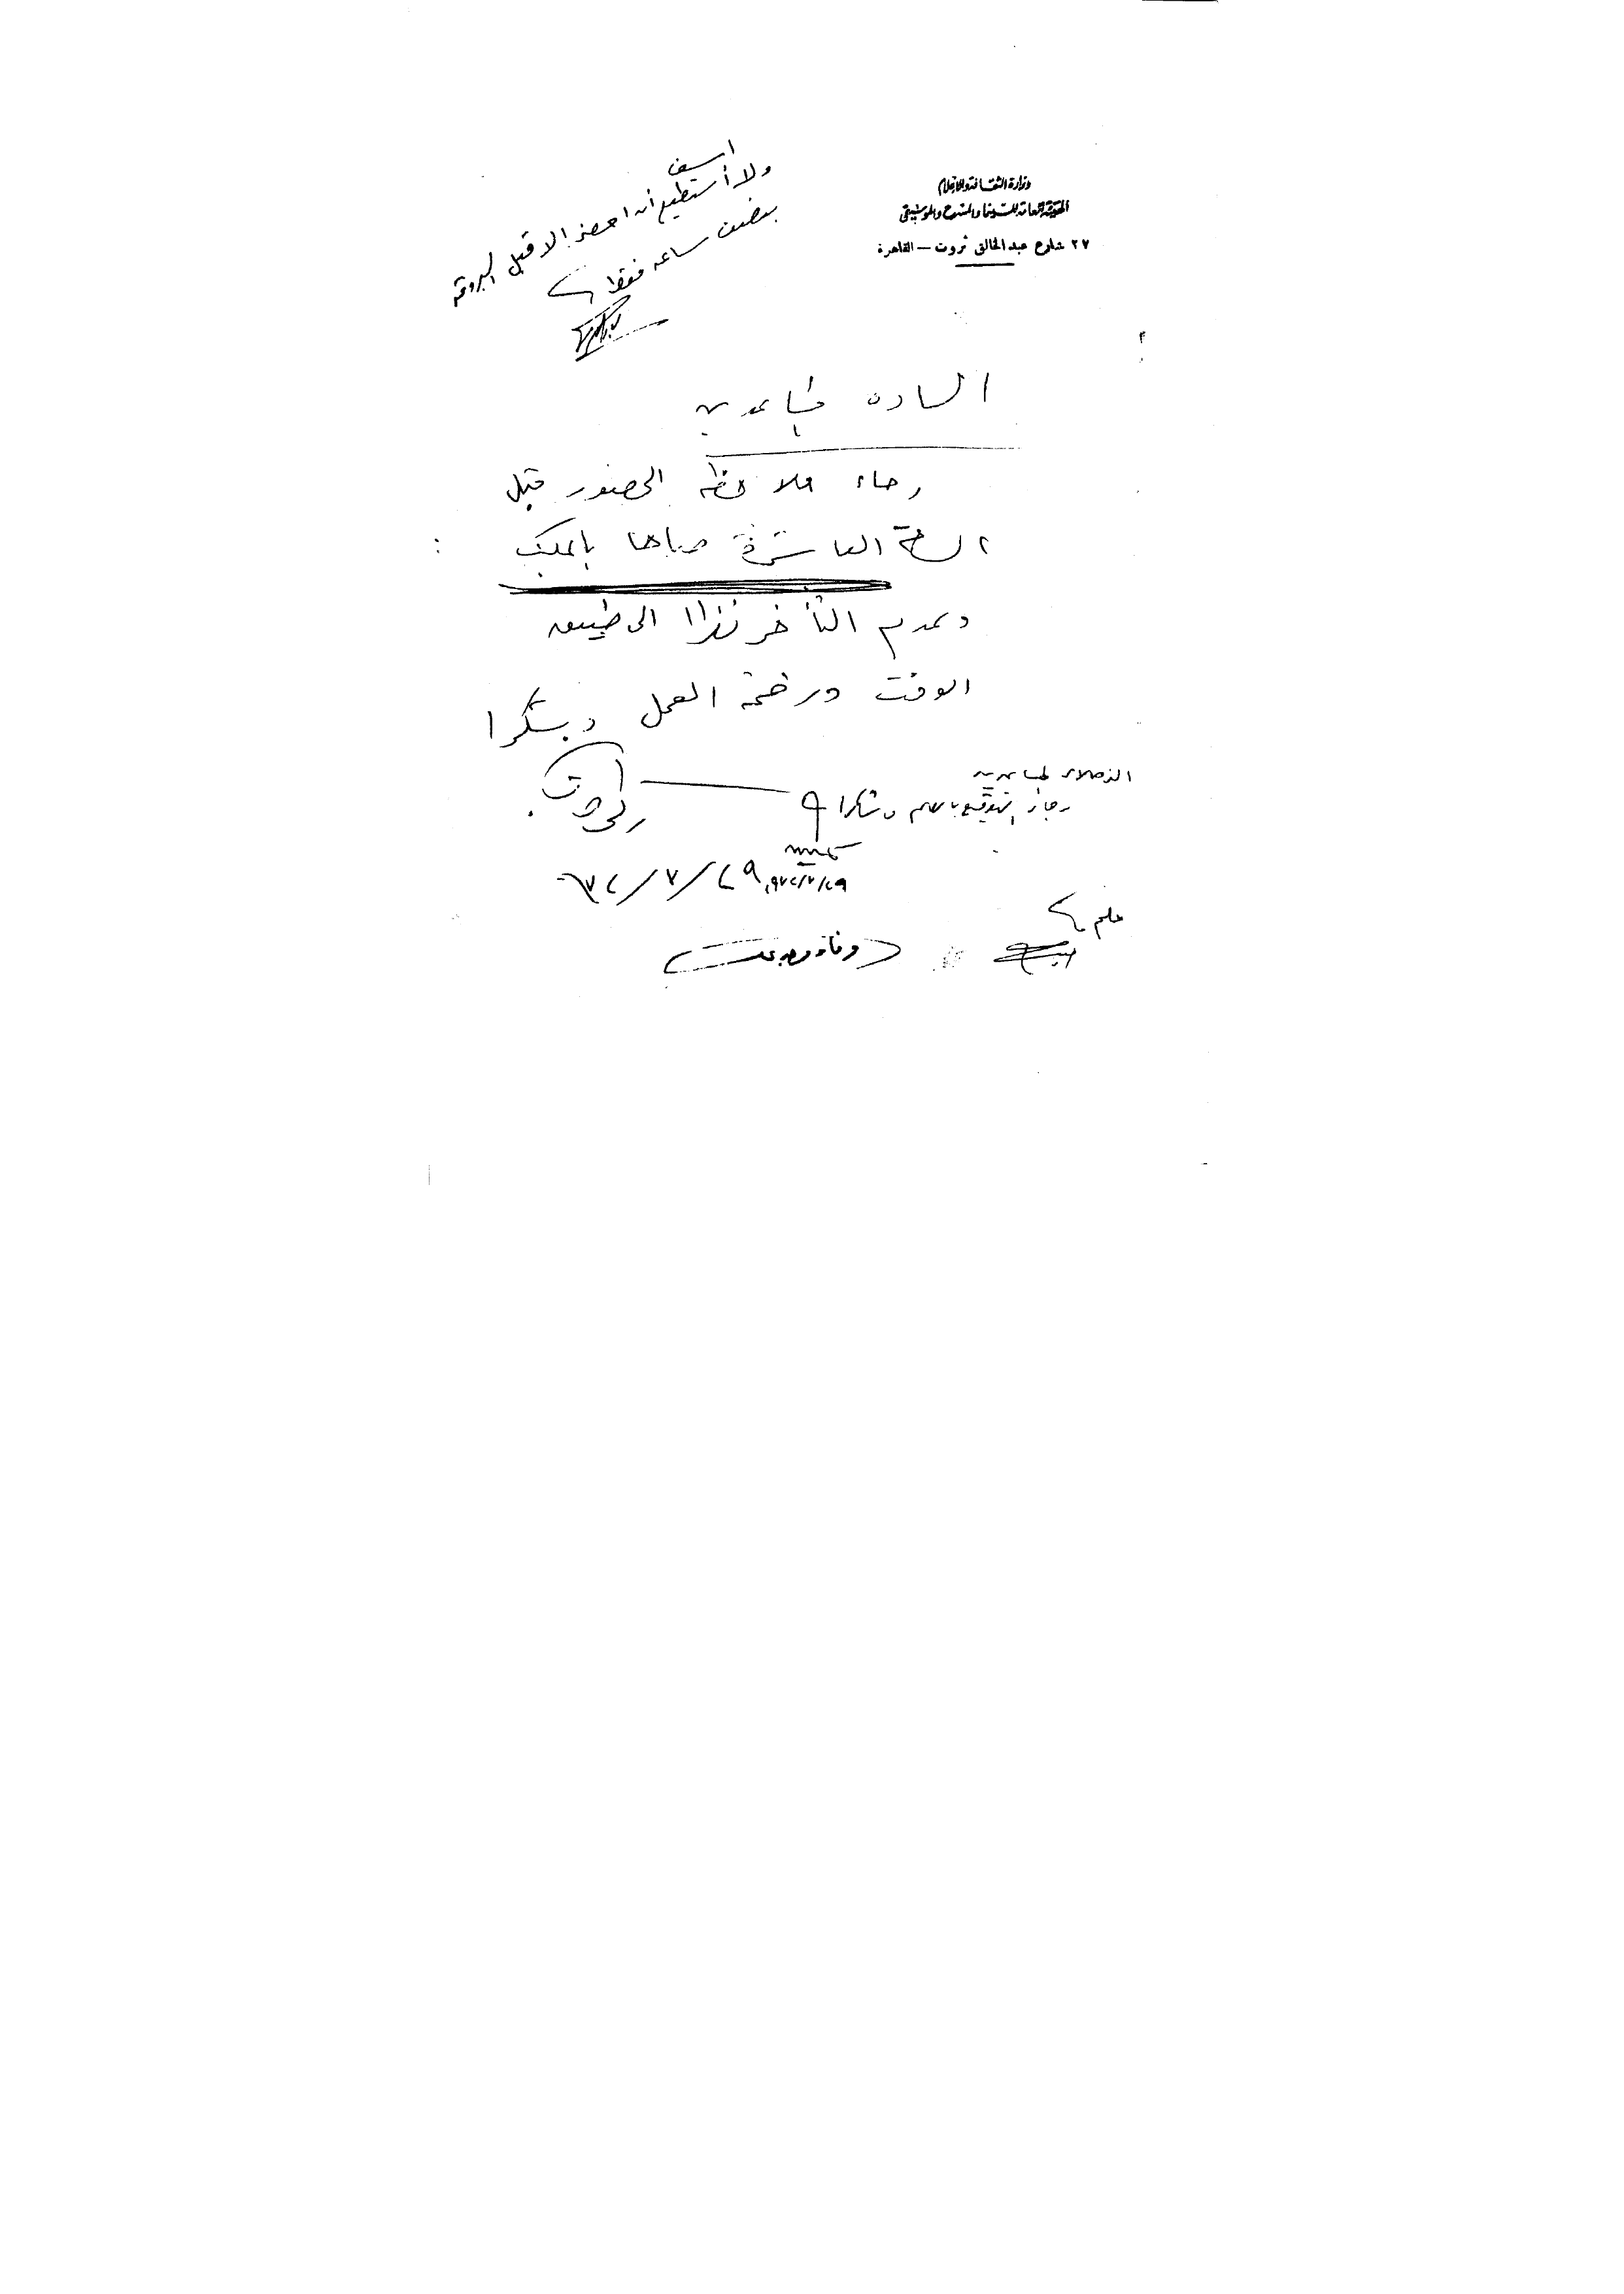 وزارة الثقافة والإعلام
الهيئة العامة للسينما والمسرح والموسيقى
٢٧ شارع عبد الخالق ثروت - القاهرة
اسف
ولا أستطيع أن احضر الا قبل البروفه
بنصف ساعه فقط
الساده المساعدين
رجاء ملاحظه الحضور قبل
الساعة العاشرة صباحا بالمكتب
وعدم التأخر نظرا الى طبيعه
الوقت ورحمة العمل وشكرا
الزملاء المساعدين
رجاء التوقيع بالعلم وشكرا
٢٩/٧/٧٢
١٩٧٢/٧/٢٩
علم